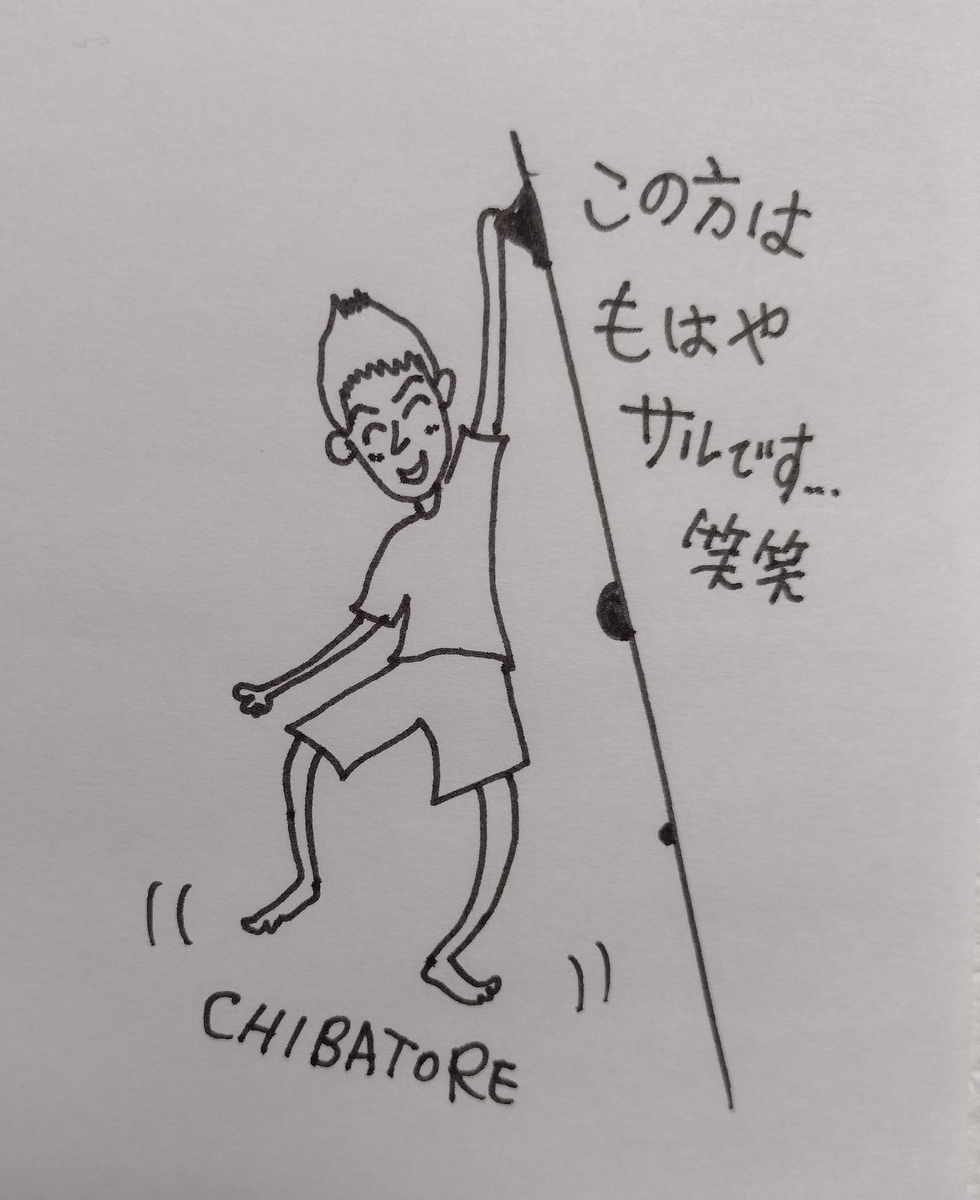 この方は
もはや
サルです...
笑笑
CHIBATORE